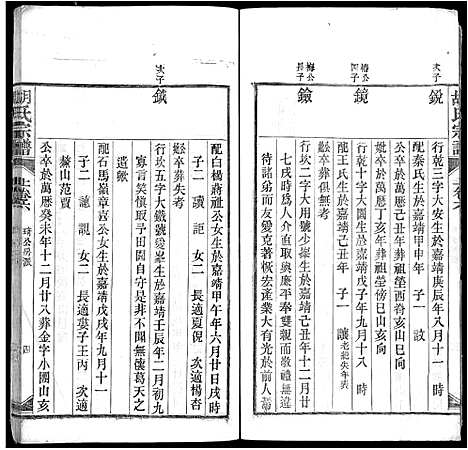 胡氏宗譜
次子 銳
行乾三字大安生於嘉靖庚辰年八月十一 時
配秦氏生於嘉靖甲申年 子一 設
公卒於萬歷 葬祖塋傍酉亥山巳向
妣卒於萬歷丁亥年葬祖塋 亥山亥向
椿公四子 鏡
行乾十字大圓生於嘉靖戊子年九月十八 時
龍王氏生於嘉靖己丑年 子一 讓 老繼失年表
娿卒葬俱無考
梅公長子 鐱
行坎二字大用號少峯生於嘉靖己丑年十二月廿
七戌時公人中直取與廉平奉雙親而敬禮無違
待諸弟而友愛克著恢宏產業大有光於前人帮
胡氏宗譜
琦公房派
四
配白楊蔣祖公女生於嘉靖甲午年六月廿日戌時
子二 讀 詎 女二 長適夏倪 次適楊杏
娿卒葬失考
次子 鐵
行坎五字大鐵號愛峯生於嘉靖壬辰年二月初九
寅時公言笑慎取予田園自守是非不聞無懷葛天之
遺歟
龍石馬嶺章嘉公女生於嘉靖戊戌年九月十一
子二 謥 誢 女二 長適婁子王丙 次適
鰲山范賈
公卒於萬歷癸未年十二月廿八葬金字小園山亥